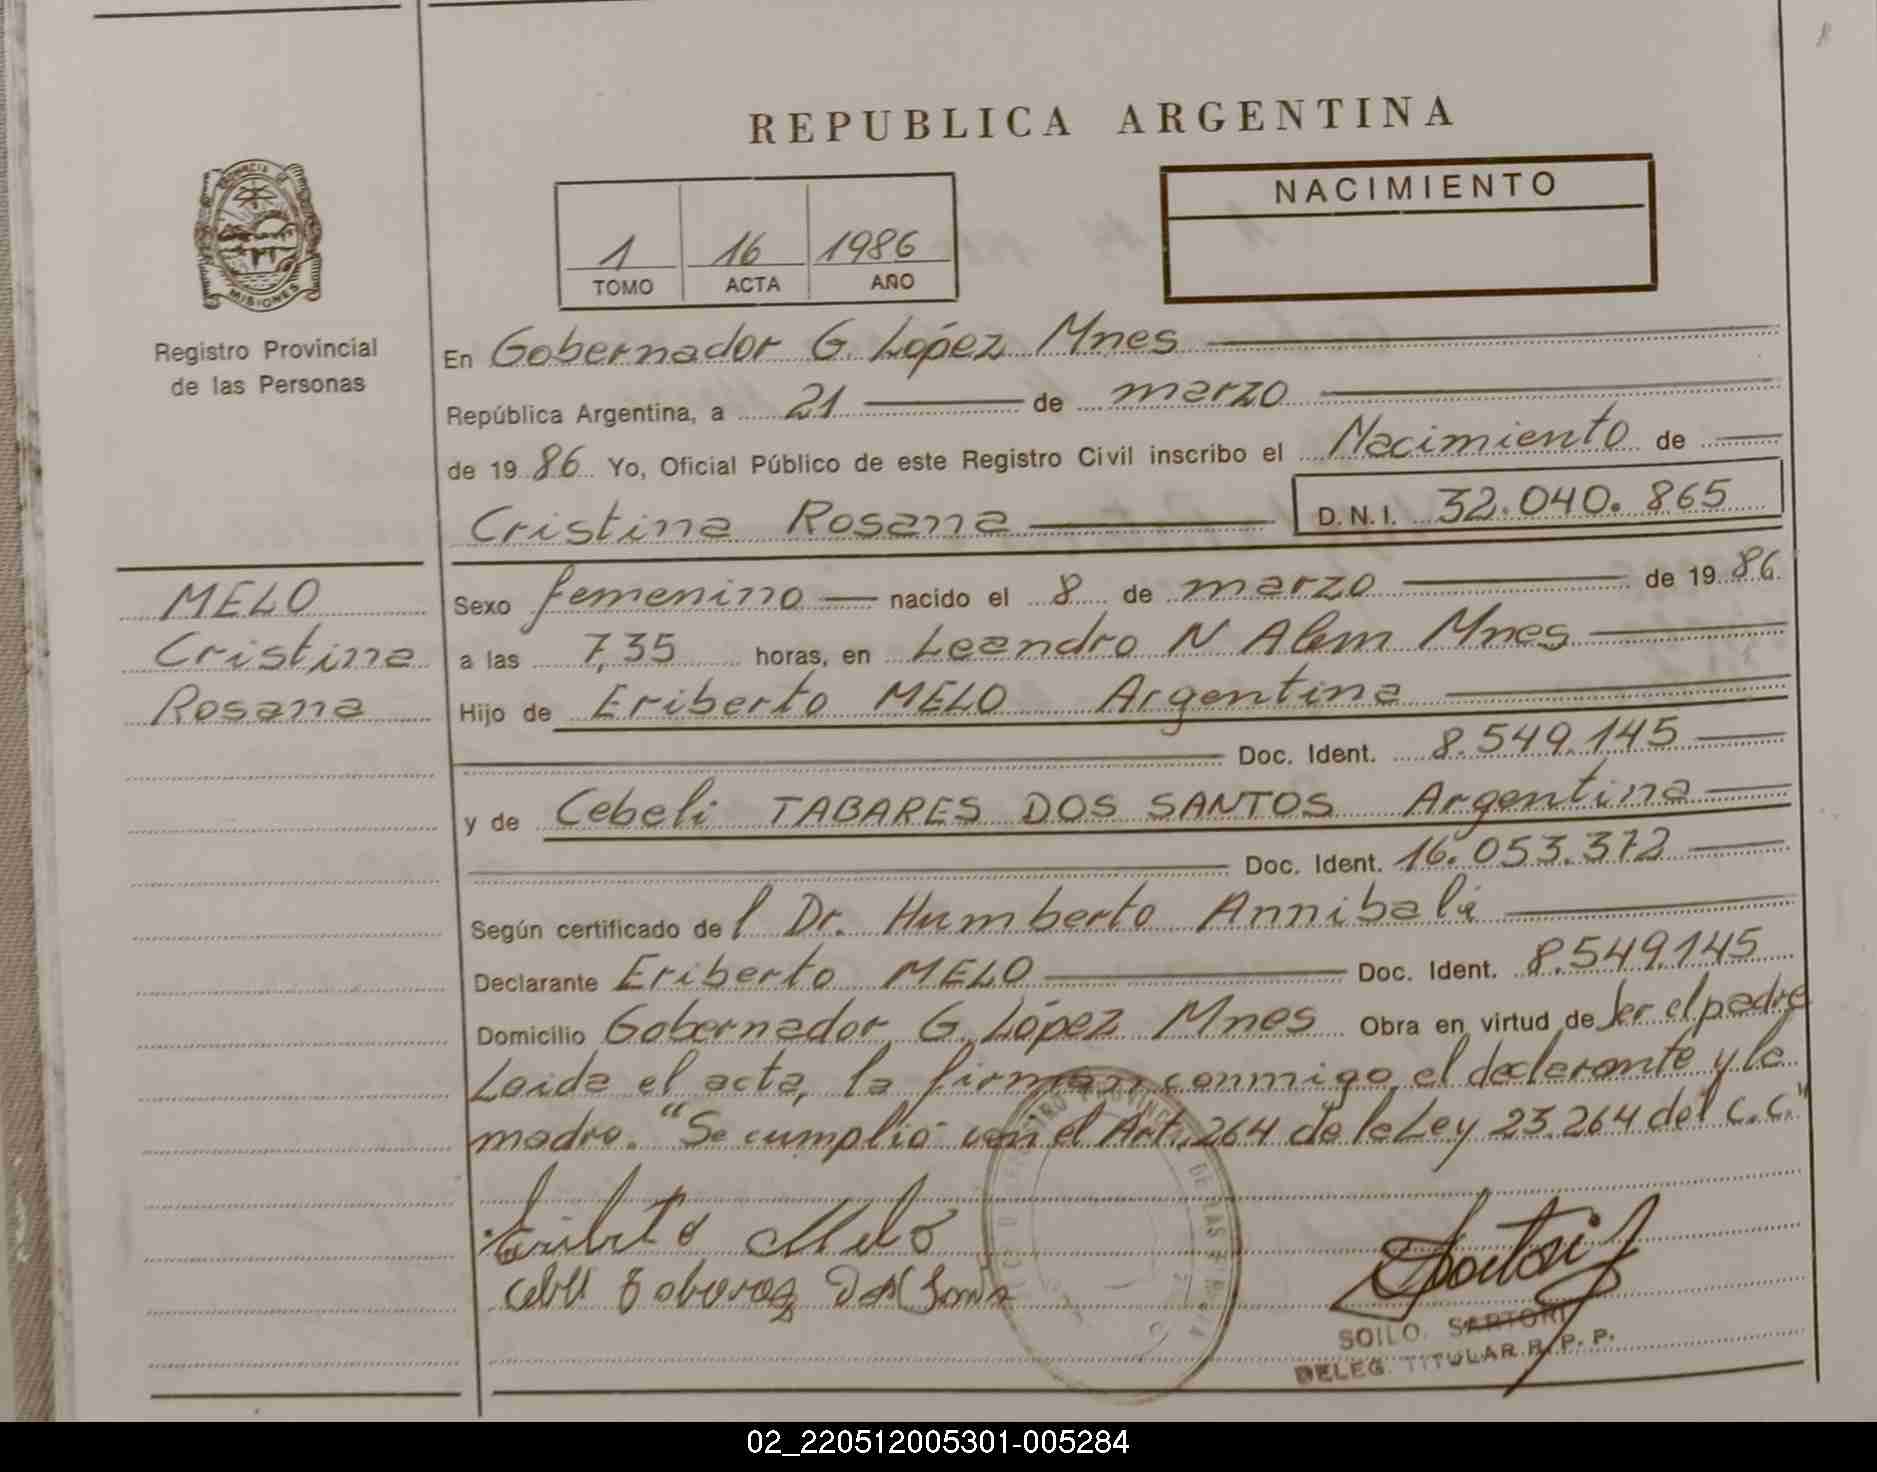 REPUBLICA ARGENTINA
PROVINCIA DE
MISIONES
Registro Provincial
de las Personas
1 16 1986
TOMO ACTA AÑO
NACIMIENTO
En Gobernador G. López Mnes
República Argentina, a 21 de marzo
de 1986 Yo, Oficial Público de este Registro Civil inscribo el Nacimiento de
Cristina Rosana D.N.I. 32.040.865
MELO
Cristina
Rosana
Sexo femenino nacido el 8 de marzo de 1986
a las 7,35 horas, en Leandro N Alem Mnes
Hijo de Eriberto MELO Argentina
Doc. Ident. 8.549.145
y de Cebeli TABARES DOS SANTOS Argentina
Doc. Ident. 16.053.372
Según certificado de l Dr. Humberto Annibali
Declarante Eriberto MELO Doc. Ident. 8.549.145
Domicilio Gobernador G. López Mnes Obra en virtud de Ser el padre
Leida el acta, la firman conmigo el declarante y la
madre. "Se cumplió con el Art. 264 de la Ley 23.264 del C.C."
Eriberto Melo
SOILO SARTORI
DELEG. TITULAR R.P.P.
02_220512005301-005284